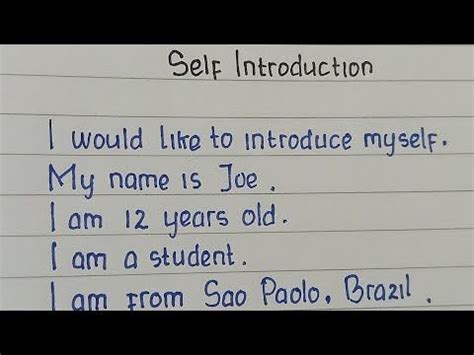 Self Introduction
I would like to introduce myself.
My name is Joe.
I am 12 years old.
I am a student.
I am from Sao Paolo, Brazil.